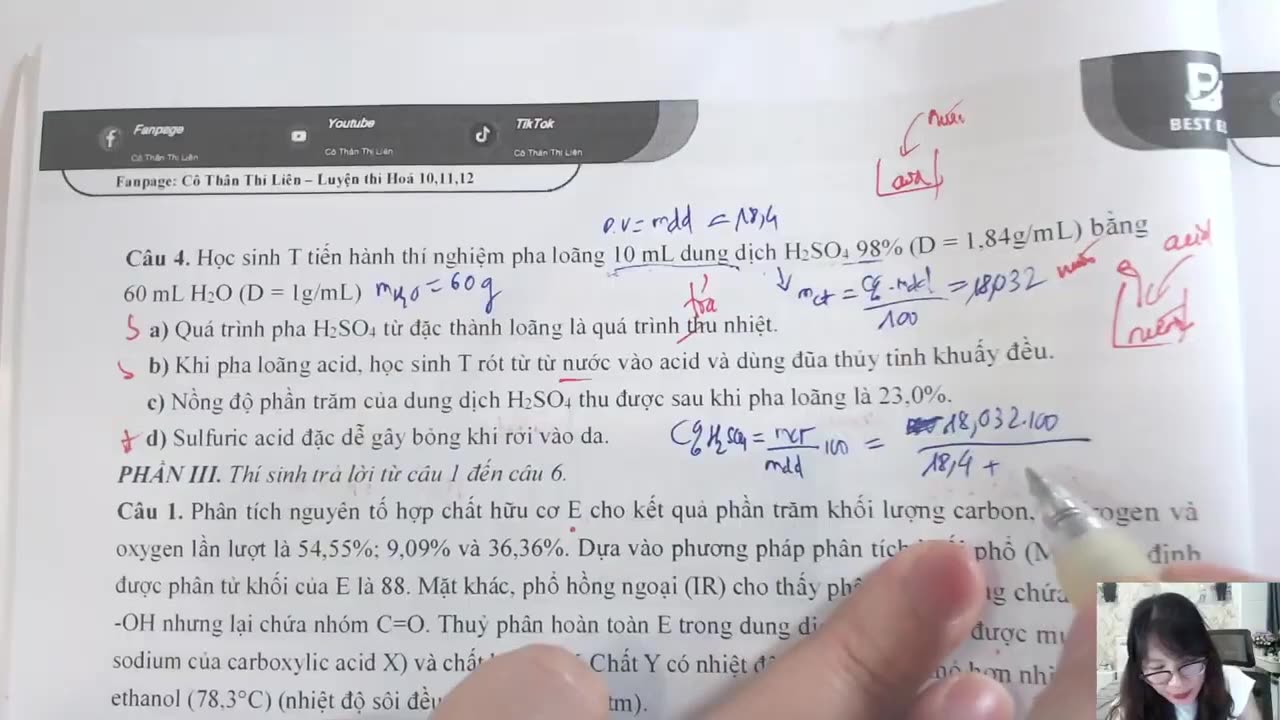 Fanpage
Cô Thân Thị Liên
Youtube
Cô Thân Thị Liên
TikTok
Cô Thân Thị Liên
BEST E
Fanpage: Cô Thân Thi Liên – Luyện thi Hoá 10,11,12
nước
acid
D.V = mdd = 18,4
Câu 4. Học sinh T tiến hành thí nghiệm pha loãng 10 mL dung dịch H₂SO₄ 98% (D = 1,84g/mL) bằng
60 mL H₂O (D = 1g/mL) mH₂O = 60g
mct = C%.mdd/100 = 18,032
nước
acid
nước
tỏa
S a) Quá trình pha H₂SO₄ từ đặc thành loãng là quá trình thu nhiệt.
S b) Khi pha loãng acid, học sinh T rót từ từ nước vào acid và dùng đũa thủy tinh khuấy đều.
c) Nồng độ phần trăm của dung dịch H₂SO₄ thu được sau khi pha loãng là 23,0%.
C% H₂SO₄ = mct/mdd 100 = 18,032.100
18,4 +
đ d) Sulfuric acid đặc dễ gây bỏng khi rơi vào da.
PHẦN III. Thí sinh trả lời từ câu 1 đến câu 6.
Câu 1. Phân tích nguyên tố hợp chất hữu cơ E cho kết quả phần trăm khối lượng carbon, rogen và
oxygen lần lượt là 54,55%; 9,09% và 36,36%. Dựa vào phương pháp phân tích phổ (M định
được phân tử khối của E là 88. Mặt khác, phổ hồng ngoại (IR) cho thấy ph ng chứa
-OH nhưng lại chứa nhóm C=O. Thuỷ phân hoàn toàn E trong dung dị được mu
sodium của carboxylic acid X) và chất Chất Y có nhiệt đ hơn nhi
ethanol (78,3°C) (nhiệt độ sôi đều tm).